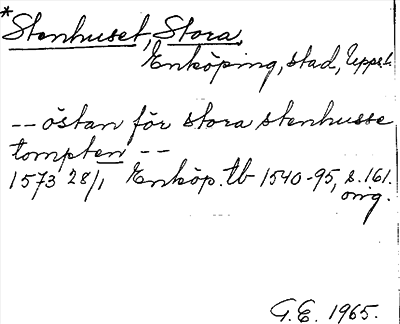 *Stenhuset, Stora
Enköping, stad, Uppsl.
-- östan för stora stenhusse
tompten --
1573 28/1 Enköp. tb 1540-95, s. 161.
orig.
G.E. 1965.